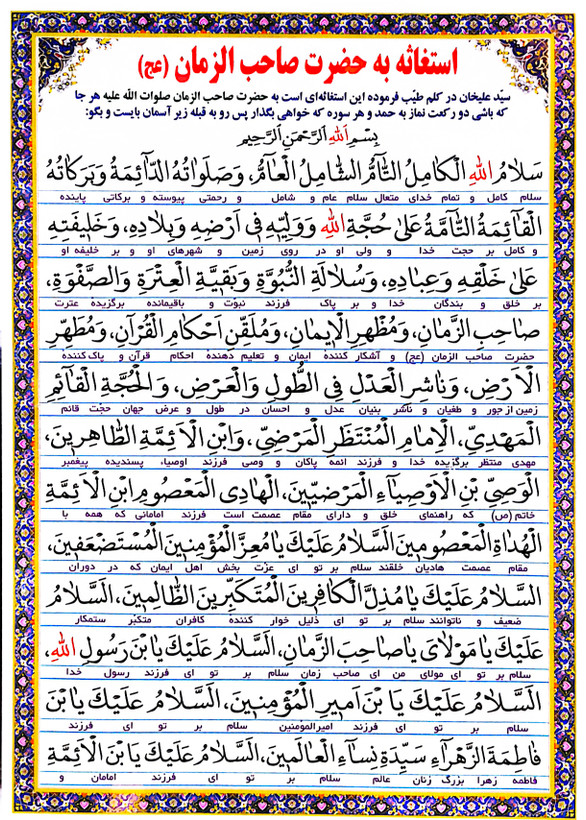 استغاثه به حضرت صاحب الزمان (عج)
سیّد علیخان در کلم طیّب فرموده این استغاثه‌ای است به حضرت صاحب الزمان صلوات الله علیه هر جا
که باشی دو رکعت نماز به حمد و هر سوره که خواهی بگذار پس رو به قبله زیر آسمان بایست و بگو:
بِسْمِ اللهِ الرَّحْمٰنِ الرَّحِیمِ
سَلَامُ اللهِ الْكَامِلُ التَّامُّ الشَّامِلُ الْعَامُّ، وَصَلَوَاتُهُ الدَّائِمَةُ وَبَرَكَاتُهُ
سلام کامل و تمام خدای متعال سلام عام و شامل و رحمتی پیوسته و برکاتی پاینده
الْقَائِمَةُ التَّامَّةُ عَلىٰ حُجَّةِ اللهِ وَوَلِيِّهِ فِي اَرْضِهِ وَبِلَادِهِ، وَخَلِيفَتِهِ
و کامل بر حجت خدا و ولی او در روی زمین و شهرهای او و بر خلیفه او
عَلىٰ خَلْقِهِ وَعِبَادِهِ، وَسُلَالَةِ النُّبُوَّةِ وَبَقِيَّةِ الْعِتْرَةِ وَالصَّفْوَةِ،
بر خلق و بندگان خدا و بر پاک فرزند نبوّت و باقیمانده برگزیده عترت
صَاحِبِ الزَّمَانِ، وَمُظْهِرِ الْاِيمَانِ، وَمُلَقِّنِ اَحْكَامِ الْقُرْآنِ، وَمُطَهِّرِ
حضرت صاحب الزمان (عج) و آشکار کننده ایمان و تعلیم دهنده احکام قرآن و پاک کننده
الْاَرْضِ، وَنَاشِرِ الْعَدْلِ فِي الطُّولِ وَالْعَرْضِ، وَالْحُجَّةِ الْقَائِمِ
زمین از جور و طغیان و ناشر بنیان عدل و احسان در طول و عرض جهان حجّت قائم
الْمَهْدِيِّ، الْاِمَامِ الْمُنْتَظَرِ الْمَرْضِيِّ، وَابْنِ الْاَئِمَّةِ الطَّاهِرِينَ،
مهدی منتظر برگزیده خدا و فرزند ائمه پاکان و وصی فرزند اوصیاء پسندیده پیغمبر
الْوَصِيِّ بْنِ الْاَوْصِيَاءِ الْمَرْضِيِّينَ، الْهَادِي الْمَعْصُومِ ابْنِ الْاَئِمَّةِ
خاتم (ص) که راهنمای خلق و دارای مقام عصمت است فرزند امامانی که همه با
الْهُدَاةِ الْمَعْصُومِينَ اَلسَّلَامُ عَلَيْكَ يَا مُعِزَّ الْمُؤْمِنِينَ الْمُسْتَضْعَفِينَ،
مقام عصمت هادیان خلقند سلام بر تو ای عزت بخش اهل ایمان که در دوران
اَلسَّلَامُ عَلَيْكَ يَا مُذِلَّ الْكَافِرِينَ الْمُتَكَبِّرِينَ الظَّالِمِينَ، اَلسَّلَامُ
ضعیف و ناتوانند سلام بر تو ای ذلیل خوار کننده کافران متکبر ستمکار
عَلَيْكَ يَا مَوْلَايَ يَا صَاحِبَ الزَّمَانِ، اَلسَّلَامُ عَلَيْكَ يَا بْنَ رَسُولِ اللهِ،
سلام بر تو ای مولای من ای صاحب زمان سلام بر تو ای فرزند رسول خدا
اَلسَّلَامُ عَلَيْكَ يَا بْنَ اَمِيرِ الْمُؤْمِنِينَ، اَلسَّلَامُ عَلَيْكَ يَا بْنَ
سلام بر تو ای فرزند امیرالمؤمنین سلام بر تو ای فرزند
فَاطِمَةَ الزَّهْرَاءِ سَيِّدَةِ نِسَاءِ الْعَالَمِينَ، اَلسَّلَامُ عَلَيْكَ يَا بْنَ الْاَئِمَّةِ
فاطمه زهرا بزرگ زنان عالم سلام بر تو ای فرزند امامان و